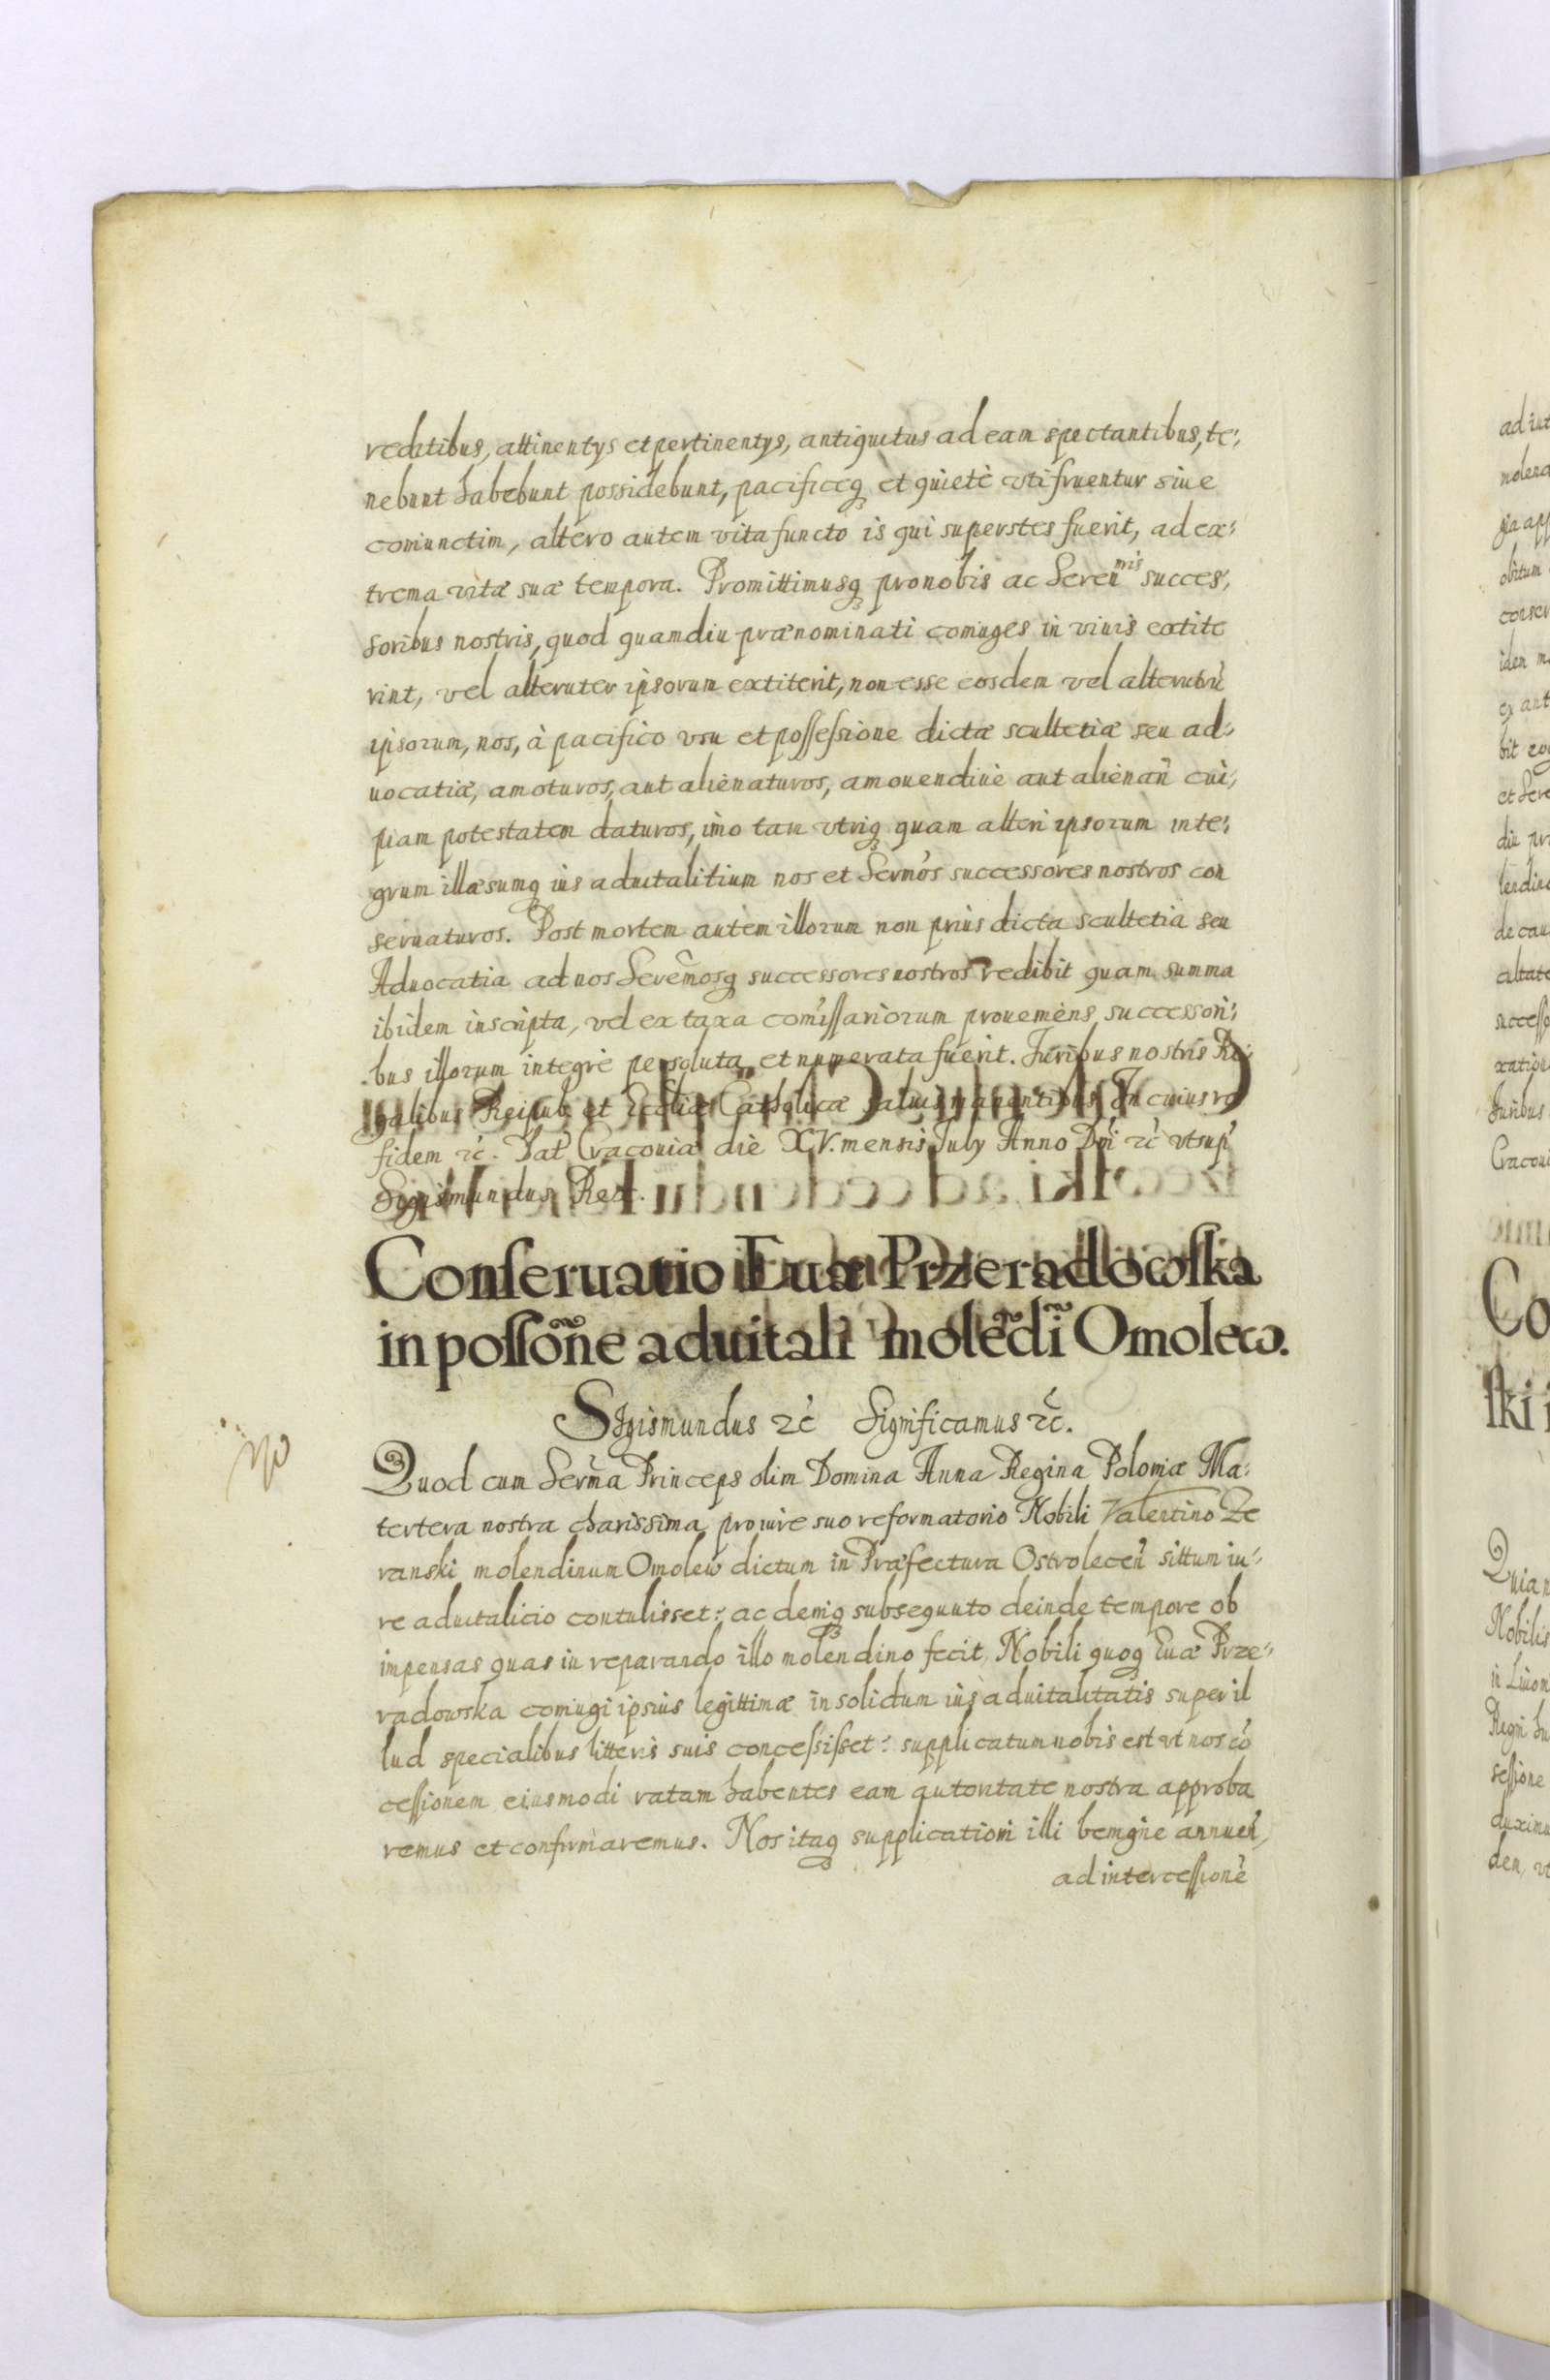 reditibus, attinentys et pertinentys, antiquitus ad eam spectantibus, te:
nebunt habebunt possidebunt, pacificeq₃ et quietè utifruentur siue
coniunctim, altero autem vita functo is qui superstes fuerit, ad ex:
trema vitæ suæ tempora. Promittimusq₃ pro nobis ac Seren^mis succes:
soribus nostris, quod quamdiu prænominati coniuges in viuis extite
rint, vel alteruter ipsorum extiterit, non esse eosdem vel alterutrũ
ipsorum, nos, à pacifico vsu et possessione dictæ scultetiæ seu ad:
uocatiæ, amoturos, aut alienaturos, amouendiue aut alienañ cui:
piam potestatem daturos, imo tam vtriq₃ quam alteri ipsorum inte:
grum illæsumq₃ ius aduitalitium nos et Sermõs successores nostros con
seruaturos. Post mortem autem illorum non prius dicta scultetia seu
Aduocatia ad nos Serẽmosq₃ successores nostros redibit quam summa
ibidem inscripta, vel ex taxa com̃issariorum proueniens successori:
bus illorum integrè persoluta et numerata fuerit. Iuribus nostris Re:
galibus Reipub. et Ecclīæ Catholicæ saluis manentibus. In cuius rei
fidem rc̃. Dat̃ Cracouiæ die XV. mensis July Anno Dñi rc̃ vt sup̃
Sigismundus Rex.
Conseruatio Euæ Przeradowska
in possõne aduitali molẽdi͂ Omolew.
Sigismundus rc̃ Significamus rc̃.
Quod cum Serm̃a Princeps olim Domina Anna Regina Poloniæ Ma:
tertera nostra charissima, pro iure suo reformatorio Nobili Valentino Ze
ranski molendinum Omolew dictum in Præfectura Ostrolecen̄ sittum iu:
re aduitalicio contulisset: ac deniq₃ subsequuto deinde tempore ob
impensas quas in reparando illo molendino fecit, Nobili quoq₃ Euæ Prze:
radowska coniugi ipsius legittimæ in solidum ius aduitalitatis super il
lud specialibus litteris suis concessisset: supplicatum nobis est vt nos cõ
cessionem eiusmodi ratam habentes eam autoritate nostra approba
remus et confirmaremus. Nos itaq₃ supplicationi illi benignè annuen̄,
ad intercessionẽ